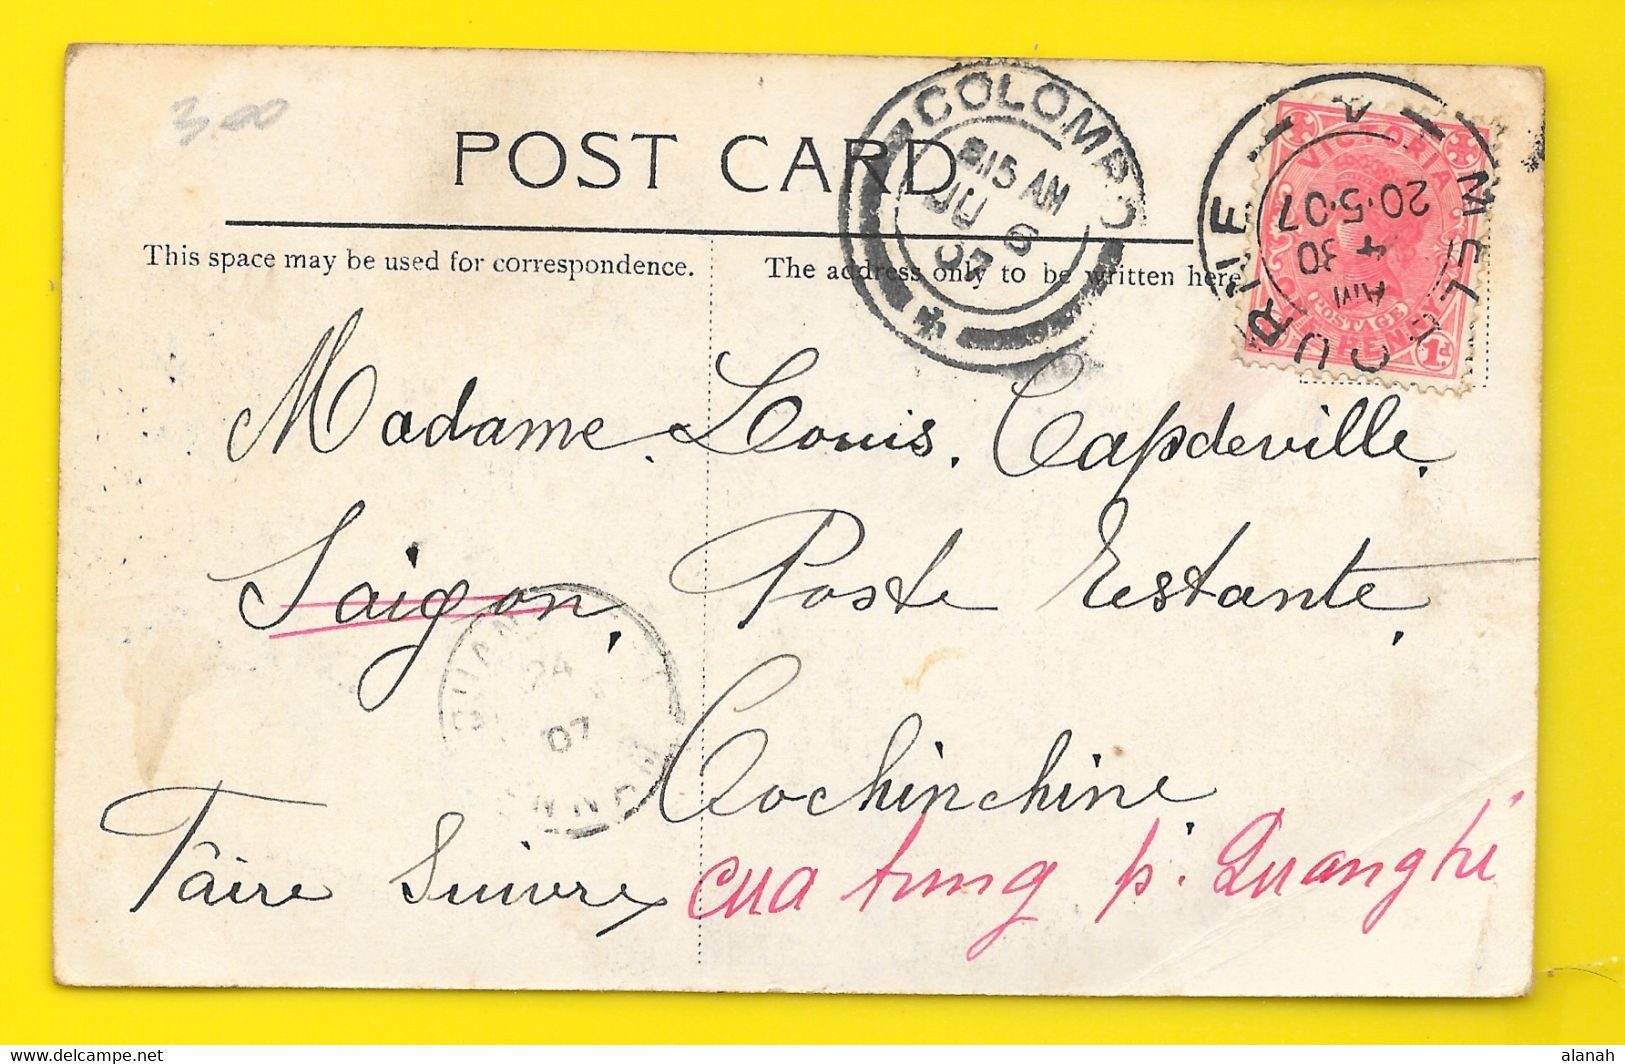 300
POST CARD
This space may be used for correspondence.
The address only to be written here
COLOMBO
8.15 AM
JU 6
07
MELBOURNE
20·5·07
4 30 AM
VICTORIA
POSTAGE
1d
Madame. Louis. Capdeville.
Saigon. Poste Restante.
Cochinchine
Faire Suivre cua tung p. Quangtri
24
07
alanah